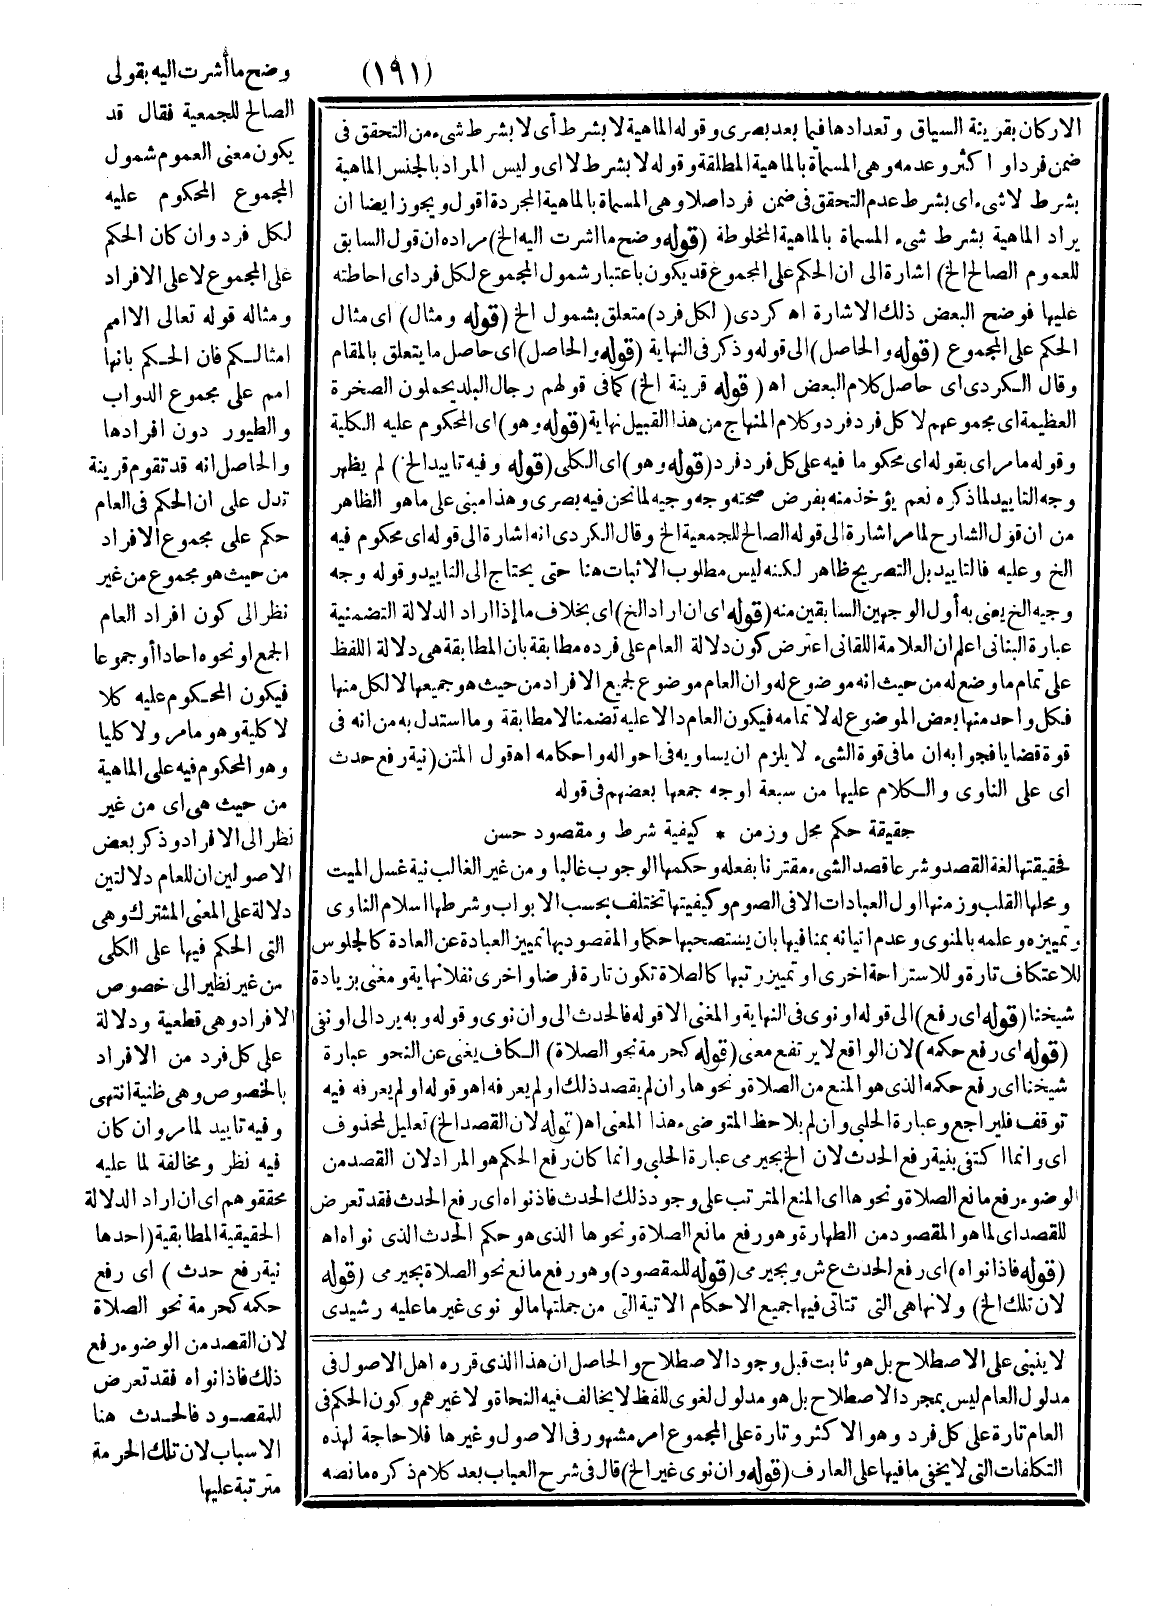 (١٩١)
الاركان بقرينة السياق وتعدادها فيما بعد بصرى وقوله الماهية لا بشرط أى لا بشرط شىء من التحقق فى
ضمن فرد او اكثر وعدمه وهى المسماة بالماهية المطلقة وقوله لا بشرط لا اى وليس المراد بالجنس الماهية
بشرط لا شىء اى بشرط عدم التحقق فى ضمن فرد اصلا وهى المسماة بالماهية المجردة اقول ويجوز ايضا ان
يراد الماهية بشرط شىء المسماة بالماهية المخلوطة (قوله وضح ما اشرت اليه الخ) مراده ان قول السابق
للعموم الصالح الخ) اشارة الى ان الحكم على المجموع قد يكون باعتبار شمول المجموع لكل فرد اى احاطته
عليها فوضح البعض ذلك الاشارة اه كردى (لكل فرد) متعلق بشمول الخ (قوله ومثال) اى مثال
الحكم على المجموع (قوله والحاصل) الى قوله وذكر فى النهاية (قوله والحاصل) اى حاصل ما يتعلق بالمقام
وقال الكردى اى حاصل كلام البعض اه (قوله قرينة الخ) كما فى قولهم رجال البلد يحملون الصخرة
العظيمة اى مجموعهم لا كل فرد فرد وكلام المنهاج من هذا القبيل نهاية (قوله وهو) اى المحكوم عليه الكلية
وقوله ما مر اى بقوله اى محكوما فيه على كل فرد فرد (قوله وهو) اى الكلى (قوله وفيه تاييد الخ) لم يظهر
وجه التاييد لما ذكره نعم يؤخذ منه بفرض صحته وجه وجيه لما نحن فيه بصرى وهذا مبنى على ما هو الظاهر
من ان قول الشارح لما مر اشارة الى قوله الصالح للجمعية الخ وقال الكردى انه اشارة الى قوله اى محكوم فيه
الخ وعليه فالتاييد بل التصريح ظاهر لكنه ليس مطلوب الاثبات هنا حتى يحتاج الى التاييد وقوله وجه
وجيه الخ يعنى به أول الوجهين السابقين منه (قوله اى ان اراد الخ) اى بخلاف ما إذا اراد الدلالة التضمنية
عبارة البنانى اعلم ان العلامة اللقانى اعترض كون دلالة العام على فرده مطابقة بان المطابقة هى دلالة اللفظ
على تمام ما وضع له من حيث انه موضوع له وان العام موضوع لجميع الافراد من حيث هو جميعها لا لكل منها
فكل واحد منها بعض الموضوع له لا تمامه فيكون العام دالا عليه تضمنا لا مطابقة وما استدل به من انه فى
قوة قضايا فجوابه ان ما فى قوة الشىء لا يلزم ان يساويه فى احواله واحكامه اه قول المتن (نية رفع حدث
اى على الناوى والكلام عليها من سبعة اوجه جمعها بعضهم فى قوله
حقيقة حكم محل وزمن * كيفية شرط ومقصود حسن
فحقيقتها لغة القصد وشرعا قصد الشىء مقترنا بفعله وحكمها الوجوب غالبا ومن غير الغالب نية غسل الميت
ومحلها القلب وزمنها اول العبادات الا فى الصوم وكيفيتها تختلف بحسب الابواب وشرطها اسلام الناوى
وتمييزه وعلمه بالمنوى وعدم اتيانه بمنافيها بان يستصحبها حكما والمقصود بها تمييز العبادة عن العادة كالجلوس
للاعتكاف تارة وللاستراحة اخرى او تمييز رتبها كالصلاة تكون تارة فرضا واخرى نفلا نهاية ومغنى بزيادة
شيخنا (قوله اى رفع) الى قوله او نوى فى النهاية والمغنى الا قوله فالحدث الى وان نوى وقوله وبه يرد الى او نفى
(قوله اى رفع حكمه) لان الواقع لا يرتفع معنى (قوله كحرمة نحو الصلاة) الكاف يغنى عن النحو عبارة
شيخنا اى رفع حكمه الذى هو المنع من الصلاة ونحوها وان لم يقصد ذلك او لم يعرفه اه وقوله او لم يعرفه فيه
توقف فليراجع وعبارة الحلبى وان لم يلاحظ المتوضىء هذا المعنى اه (قوله لان القصد الخ) تعليل لمحذوف
اى وانما اكتفى بنية رفع الحدث لان الخ بجيرمى عبارة الحلبى وانما كان رفع الحكم هو المراد لان القصد من
الوضوء رفع مانع الصلاة ونحوها اى المنع المترتب على وجود ذلك الحدث فاذا نواه اى رفع الحدث فقد تعرض
للقصد اى لما هو المقصود من الطهارة وهو رفع مانع الصلاة ونحوها الذى هو حكم الحدث الذى نواه اه
(قوله فاذا نواه) اى رفع الحدث ع ش وبجيرمى (قوله للمقصود) وهو رفع مانع نحو الصلاة بجيرمى (قوله
لان تلك الخ) ولانها هى التى تتاتى فيها جميع الاحكام الاتية التى من جملتها ما لو نوى غير ما عليه رشيدى
لا ينبنى على الاصطلاح بل هو ثابت قبل وجود الاصطلاح والحاصل ان هذا الذى قرره اهل الاصول فى
مدلول العام ليس بمجرد الاصطلاح بل هو مدلول لغوى للفظ لا يخالف فيه النحاة ولا غيرهم وكون الحكم فى
العام تارة على كل فرد وهو الاكثر وتارة على المجموع امر مشهور فى الاصول وغيرها فلا حاجة لهذه
التكلفات التى لا يخفى ما فيها على العارف (قوله وان نوى غير الخ) قال فى شرح العباب بعد كلام ذكره ما نصه
وضح ما أشرت اليه بقولى
الصالح للجمعية فقال قد
يكون معنى العموم شمول
المجموع المحكوم عليه
لكل فرد وان كان الحكم
على المجموع لا على الافراد
ومثاله قوله تعالى الا امم
امثالكم فان الحكم بانها
امم على مجموع الدواب
والطيور دون افرادها
والحاصل انه قد تقوم قرينة
تدل على ان الحكم فى العام
حكم على مجموع الافراد
من حيث هو مجموع من غير
نظر الى كون افراد العام
الجمع او نحوه احادا أو جموعا
فيكون المحكوم عليه كلا
لا كلية وهو ما مر ولا كليا
وهو المحكوم فيه على الماهية
من حيث هى اى من غير
نظر الى الافراد وذكر بعض
الاصولين ان للعام دلالتين
دلالة على المعنى المشترك وهى
التى الحكم فيها على الكلى
من غير نظير الى خصوص
الافراد وهى قطعية ودلالة
على كل فرد من الافراد
بالخصوص وهى ظنية انتهى
وفيه تاييد لما مر وان كان
فيه نظر ومخالفة لما عليه
محققوهم اى ان اراد الدلالة
الحقيقية المطابقية (احدها
نية رفع حدث) اى رفع
حكمه كحرمة نحو الصلاة
لان القصد من الوضوء رفع
ذلك فاذا نواه فقد تعرض
للمقصود فالحدث هنا
الاسباب لان تلك الحرمة
مترتبة عليها